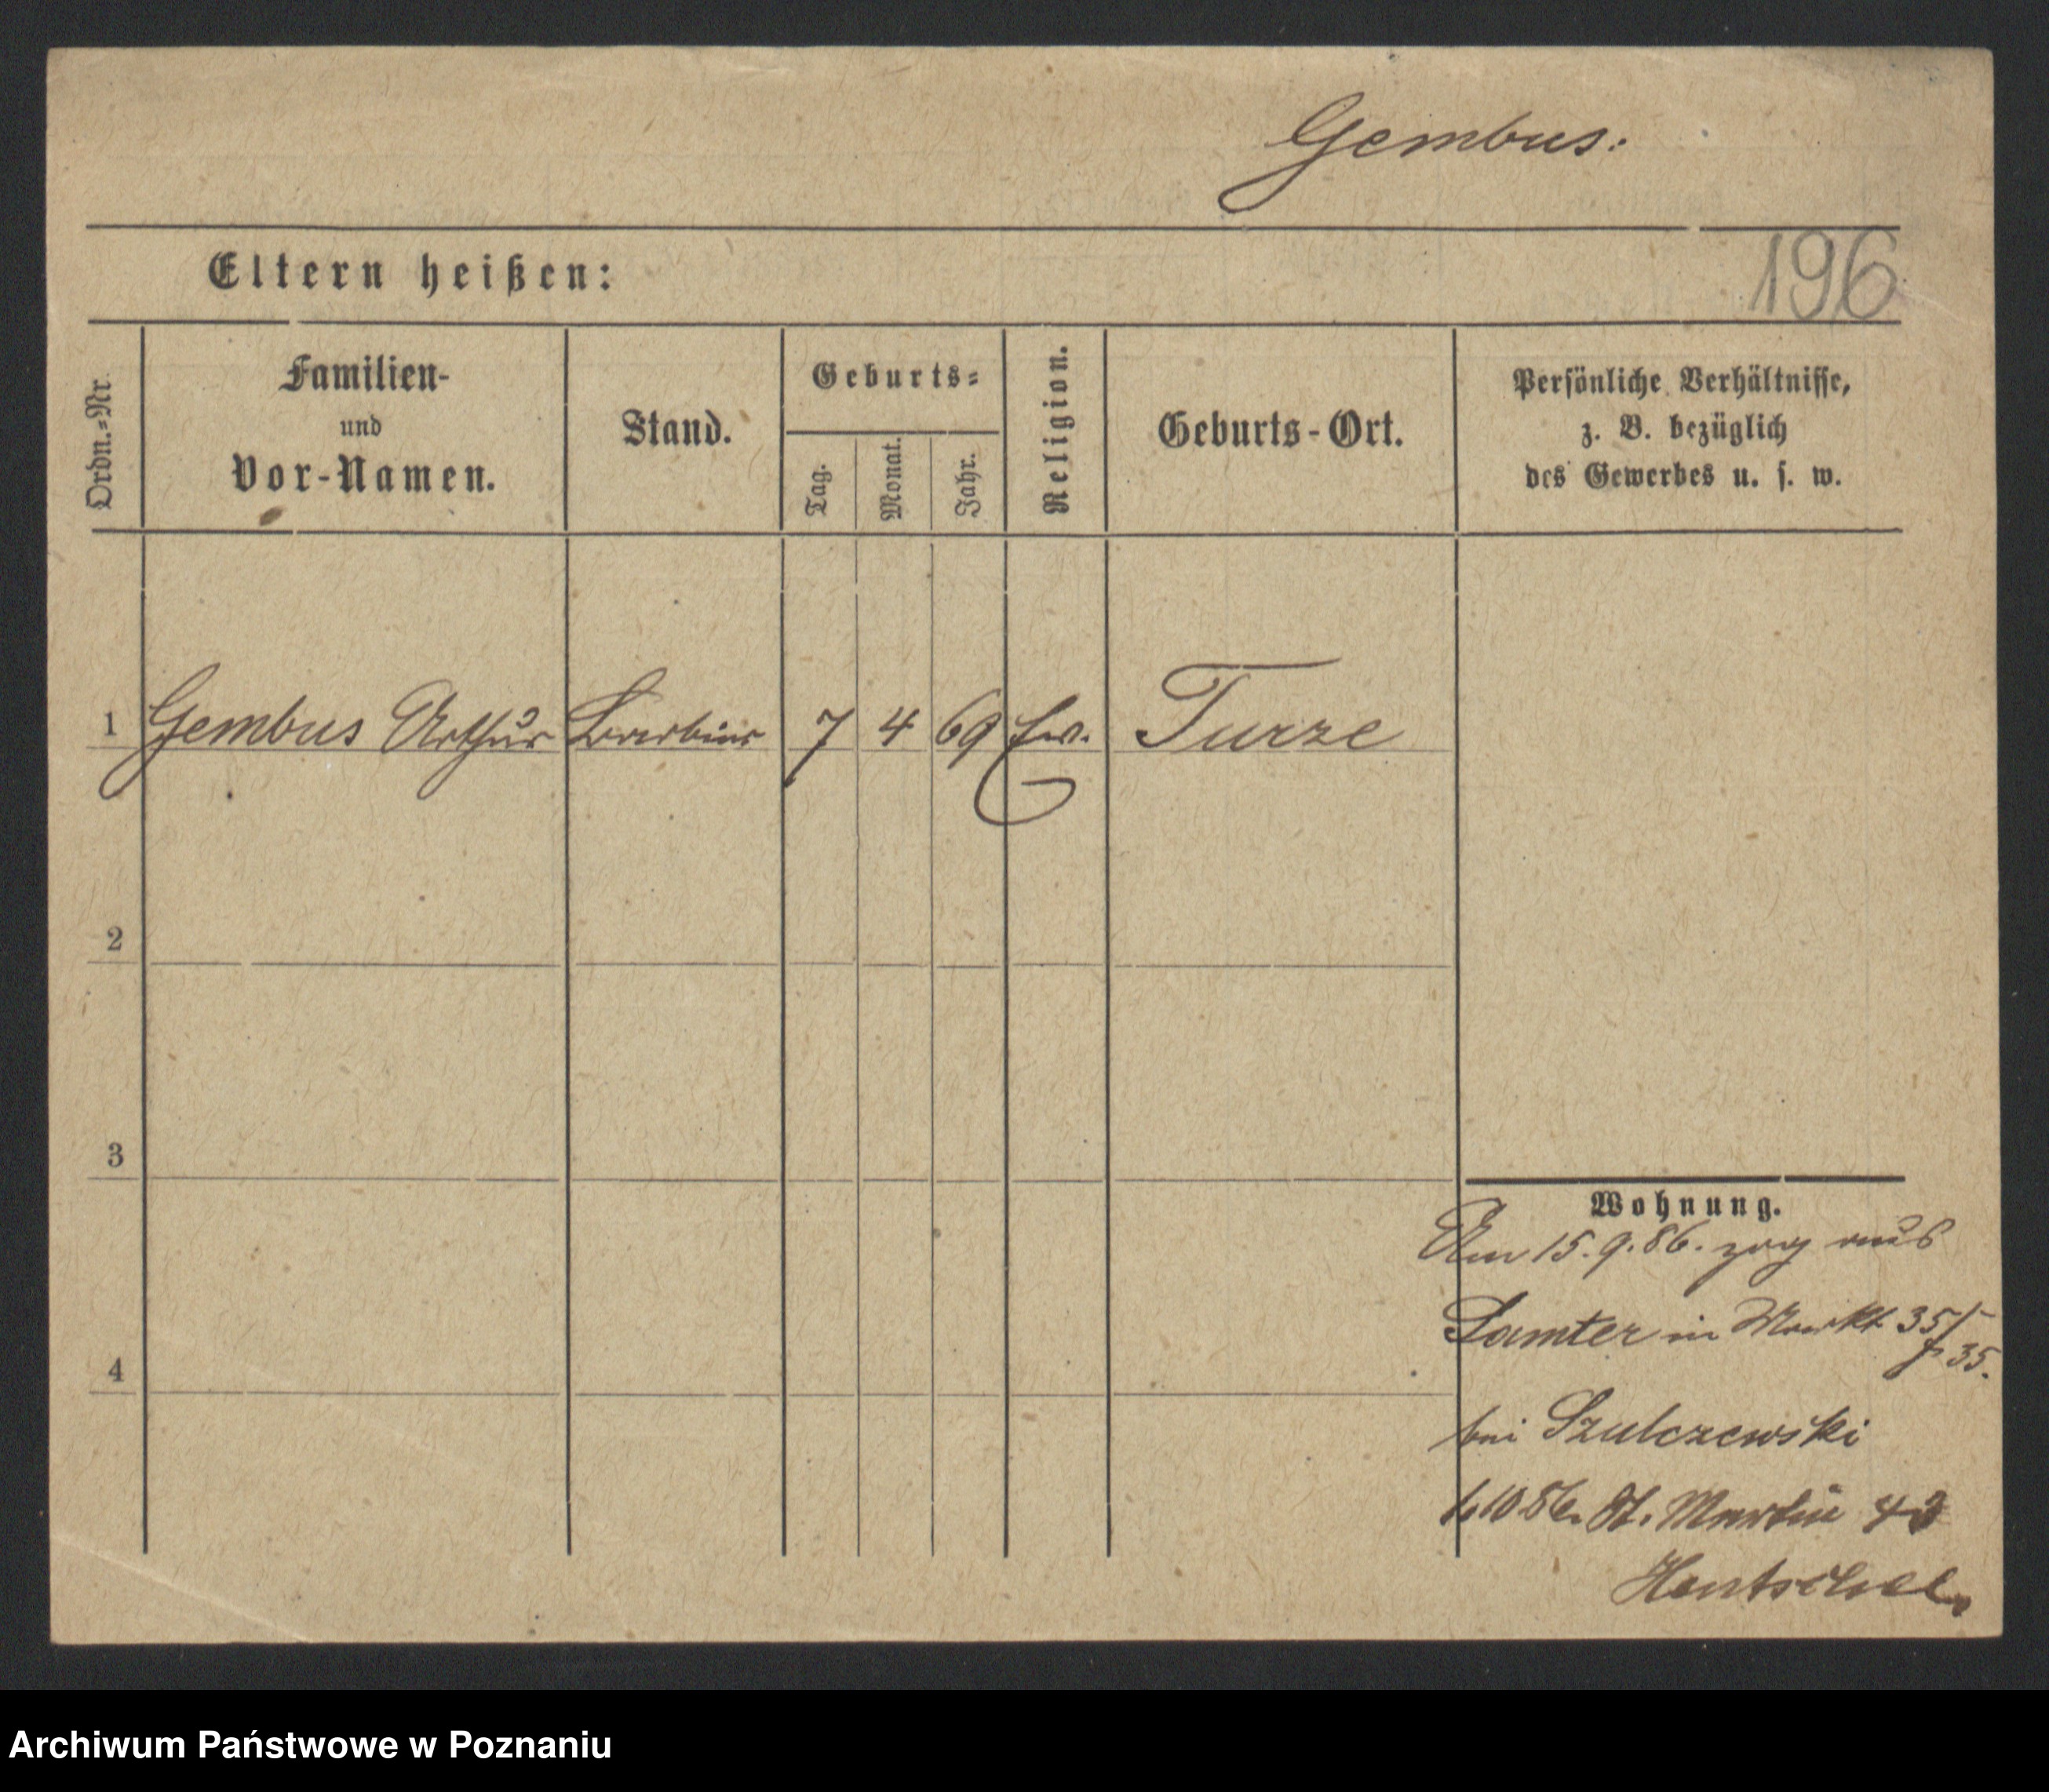 Gembus:
Eltern heißen:
196
Ordn.-Nr.
Familien-
und
Vor-Namen.
Stand.
Geburts-
Tag.
Monat.
Jahr.
Religion.
Geburts-Ort.
Persönliche Verhältnisse,
z. B. bezüglich
des Gewerbes u. s. w.
1 Gembus Arthur Barbier 7 4 69 Ev. Turze
2
3
4
Wohnung.
Am 15.9.86. zog aus
Samter in Markt 35/
35.
bei Szulczewski
10 86. St. Martin
Hentschel.
Archiwum Państwowe w Poznaniu